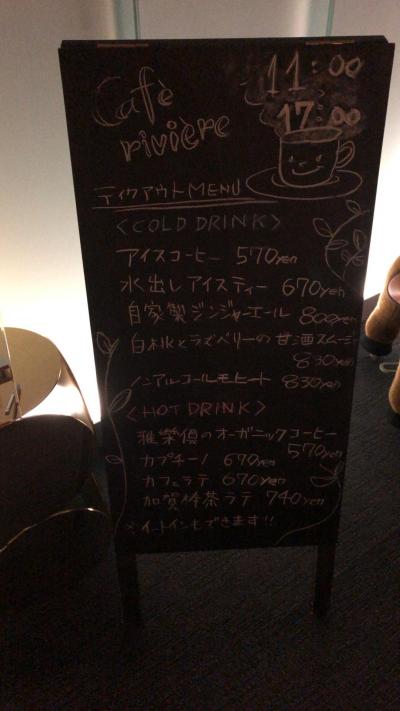 Cafe
rivière
11:00
17:00
テイクアウトMENU
<COLD DRINK>
アイスコーヒー 570yen
水出しアイスティー 670yen
自家製ジンジャーエール 800yen
白桃とラズベリーの甘酒スムージー
830yen
ノンアルコールモヒート 830yen
<HOT DRINK>
雅榮倶のオーガニックコーヒー
570yen
カプチーノ 670yen
カフェラテ 670yen
加賀棒茶ラテ 740yen
※イートインもできます!!